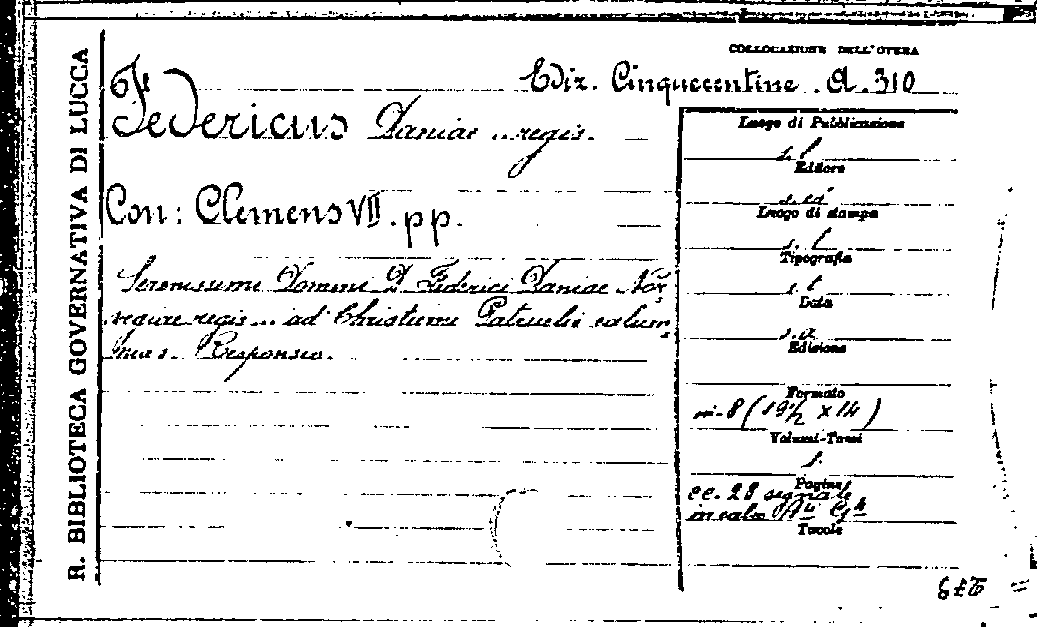 R. BIBLIOTECA GOVERNATIVA DI LUCCA
COLLOCAZIONE DELL'OPERA
Ediz. Cinquecentine. A. 310
Federicus Daniae .. regis.
Con: Clemens VII. pp.
Serenissimi Domini D. Federici Daniae Nor-
vegiae regis ... ad Christierni Patruelis calum-
nias. Responsio.
Luogo di Pubblicazione
s. l.
Editore
s. ed.
Luogo di stampa
s. l.
Tipografia
s. t.
Data
s. a.
Edizione
Formato
in-8 (19½ x 14)
Volumi-Tomi
1.
Pagine
cc. 28 segnate
in calce
Tavole